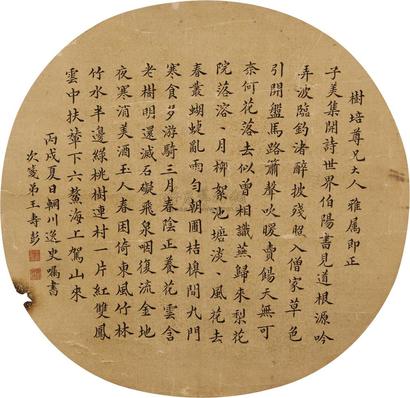 樹培尊兄大人雅屬即正
子美集開詩世界伯陽書見道根源吟
弄波臨釣渚醉披殘照入僧家草色
引開盤馬路簫聲吹暖賣餳天無可
奈何花落去似曾相識燕歸來梨花
院落溶〻月柳絮池塘淡〻風花去
春叢蝴蜨亂雨勻朝圃桔槔閒九門
寒食多游騎三月春陰正養花雲含
老樹明還滅石礙飛泉咽復流金地
夜寒消美酒玉人春困倚東風竹林
竹水半邊綠桃樹連村一片紅雙鳳
雲中扶輦下六鼇海上駕山來
丙戌夏日輞川逸史囑書
次篔弟王壽彭